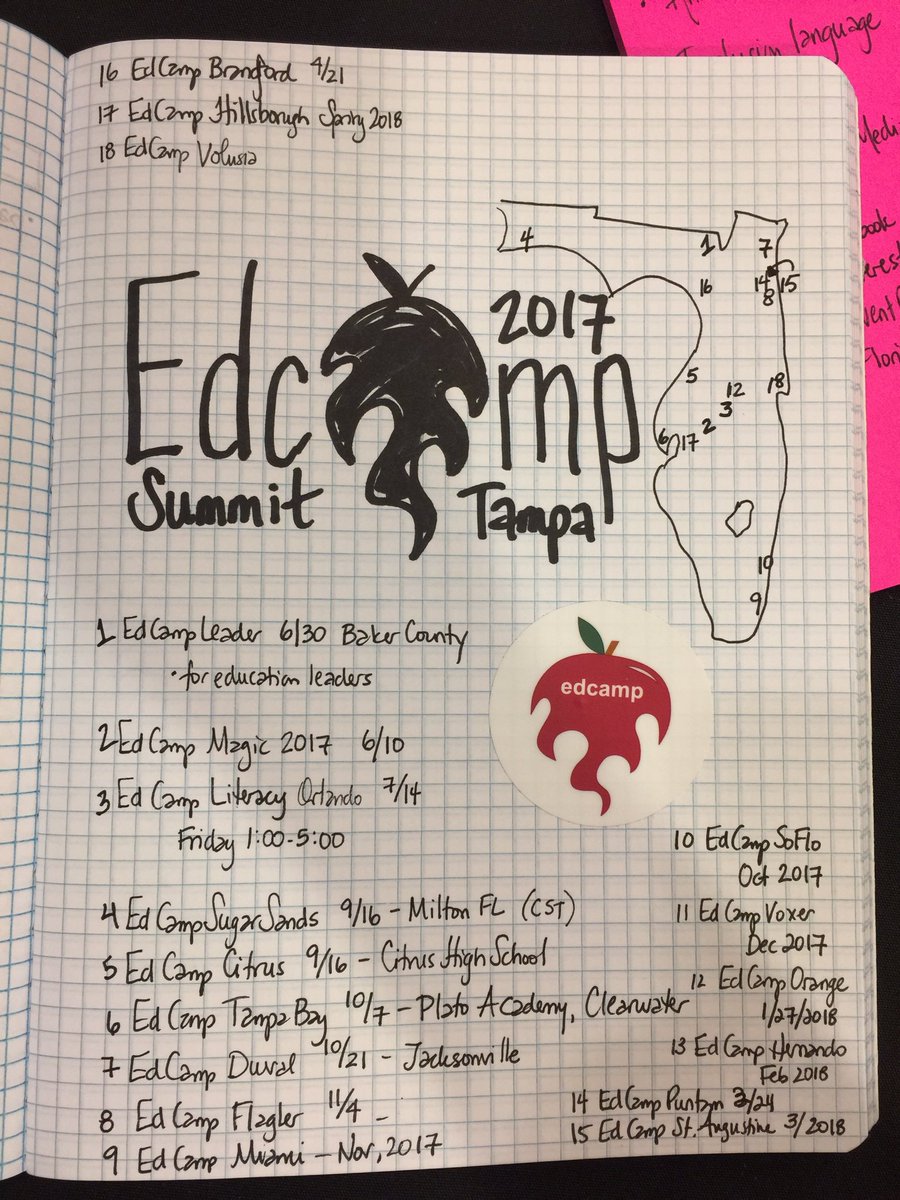 16 EdCamp Branford 4/21
17 EdCamp Hillsborough Spring 2018
18 EdCamp Volusia
Inclusion language
Edcamp
2017
Summit Tampa
4
1
7
16
14 15
8
5
12
18
3
2
6 17
10
9
1 EdCamp Leader 6/30 Baker County
· for education leaders
edcamp
2 EdCamp Magic 2017 6/10
3 EdCamp Literacy Orlando 7/14
Friday 1:00-5:00
4 EdCamp Sugar Sands 9/16 - Milton FL (CST)
5 EdCamp Citrus 9/16 - Citrus High School
6 EdCamp Tampa Bay 10/7 - Plato Academy, Clearwater
7 EdCamp Duval 10/21 - Jacksonville
8 EdCamp Flagler 11/4 -
9 EdCamp Miami - Nov, 2017
10 EdCamp SoFlo
Oct 2017
11 EdCamp Voxer
Dec 2017
12 EdCamp Orange
1/27/2018
13 EdCamp Hernando
Feb 2018
14 EdCamp Putnam 3/24
15 EdCamp St. Augustine 3/2018